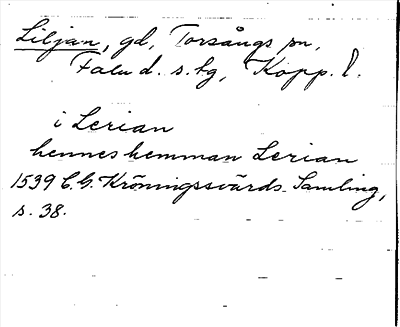 Liljan, gd, Torsångs sn,
Falu d. s. tg, Kopp. l.
i Lerian
hennes hemman Lerian
1539 C. G. Kröningssvärds Samling,
s. 38.